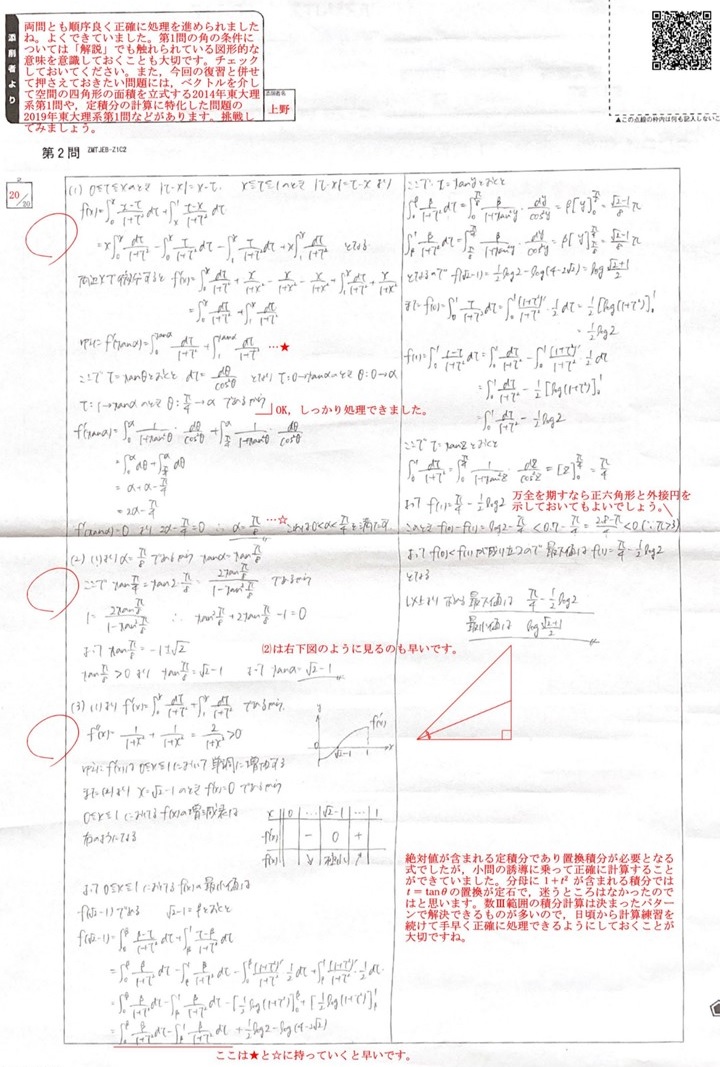 添削者より
両問とも順序良く正確に処理を進められました
ね。よくできていました。第1問の角の条件に
ついては「解説」でも触れられている図形的な
意味を意識しておくことも大切です。チェック
しておいてください。また，今回の復習と併せ
て押さえておきたい問題には，ベクトルを介し
て空間の四角形の面積を立式する2014年東大理
系第1問や，定積分の計算に特化した問題の
2019年東大理系第1問などがあります。挑戦し
てみましょう。
上野
▲この点線の枠内は何も記入しないこ
第2問 ZMTJEB-Z1C2
20/20
(1) 0≦t≦xのとき |t-x|=x-t, x≦t≦1のとき |t-x|=t-x より
f(x)=∫₀ˣ (x-t)/(1+t²) dt+∫ₓ¹ (t-x)/(1+t²) dt
=x∫₀ˣ dt/(1+t²) - ∫₀ˣ t/(1+t²) dt - ∫₁ˣ t/(1+t²) dt + x∫₁ˣ dt/(1+t²) となる
両辺xで微分すると f'(x)=∫₀ˣ dt/(1+t²) + x/(1+x²) - x/(1+x²) - x/(1+x²) + ∫₁ˣ dt/(1+t²) + x/(1+x²)
=∫₀ˣ dt/(1+t²) + ∫₁ˣ dt/(1+t²)
ゆえに f'(tanα)=∫₀^tanα dt/(1+t²) + ∫₁^tanα dt/(1+t²) …★
ここで t=tanθとおくと dt=dθ/cos²θ となり t=0→tanαのとき θ:0→α
t=1→tanαのとき θ:π/4→α であるから
OK，しっかり処理できました。
f'(tanα)=∫₀^α 1/(1+tan²θ)・dθ/cos²θ + ∫_{π/4}^α 1/(1+tan²θ)・dθ/cos²θ
=∫₀^α dθ+∫_{π/4}^α dθ
=α+α-π/4
=2α-π/4
…☆
f'(tanα)=0 より 2α-π/4=0 ∴ α=π/8 これは0<α<π/4を満たす
(2) (1)より α=π/8 であるから tanα=tanπ/8
ここで tanπ/4=tan2・π/8=2tanπ/8/(1-tan²π/8) であるから
1=2tanπ/8/(1-tan²π/8) ∴ tan²π/8+2tanπ/8-1=0
よって tanπ/8=-1±√2
⑵は右下図のように見るのも早いです。
tanπ/8>0 より tanπ/8=√2-1 よって tanα=√2-1
(3) (1)より f'(x)=∫₀ˣ dt/(1+t²)+∫₁ˣ dt/(1+t²) であるから
f''(x)=1/(1+x²)+1/(1+x²)=2/(1+x²)>0
ゆえに f'(x)は 0≦x≦1において 単調に増加する
また(2)より x=√2-1 のとき f'(x)=0 であるから
0≦x≦1 における f(x)の増減表は
右のようになる
y f'(x) 0 √2-1 1 x
x 0 … √2-1 … 1
f'(x) - 0 +
f(x) ↘ 極小 ↗
よって 0≦x≦1 における f(x)の最小値は
f(√2-1)である √2-1=βとおくと
f(√2-1)=∫₀^β (β-t)/(1+t²) dt+∫_β¹ (t-β)/(1+t²) dt
=∫₀^β β/(1+t²) dt-∫_β¹ β/(1+t²) dt-∫₀^β (1+t²)'/(1+t²)・1/2 dt+∫_β¹ (1+t²)'/(1+t²)・1/2 dt
=∫₀^β β/(1+t²) dt-∫_β¹ β/(1+t²) dt-[1/2 log(1+t²)]₀^β+[1/2 log(1+t²)]_β¹
=∫₀^β β/(1+t²) dt-∫_β¹ β/(1+t²) dt+1/2 log2-log(4-2√2)
ここは★と☆に持っていくと早いです。
ここで t=tanyとおくと
∫₀^β β/(1+t²) dt=∫₀^{π/8} β/(1+tan²y)・dy/cos²y=β[y]₀^{π/8}=(√2-1)/8 π
∫_β¹ β/(1+t²) dt=∫_{π/8}^{π/4} β/(1+tan²y)・dy/cos²y=β[y]_{π/8}^{π/4}=(√2-1)/8 π
となるので f(√2-1)=1/2 log2-log(4-2√2)=log (√2+1)/2
また f(0)=∫₀¹ t/(1+t²) dt=∫₀¹ (1+t²)'/(1+t²)・1/2 dt=1/2[log(1+t²)]₀¹
=1/2 log2
f(1)=∫₀¹ (1-t)/(1+t²) dt=∫₀¹ dt/(1+t²)-∫₀¹ (1+t²)'/(1+t²)・1/2 dt
=∫₀¹ dt/(1+t²)-1/2[log(1+t²)]₀¹
=∫₀¹ dt/(1+t²)-1/2 log2
ここで t=tanzとおくと
∫₀¹ dt/(1+t²)=∫₀^{π/4} 1/(1+tan²z)・dz/cos²z=[z]₀^{π/4}=π/4
よって f(1)=π/4-1/2 log2
万全を期すなら正六角形と外接円を
示しておいてもよいでしょう。
このとき f(0)-f(1)=log2-π/4<0.7-π/4=(2.8-π)/4<0 (∵π>3)
よって f(0)<f(1)が成り立つので 最大値は f(1)=π/4-1/2 log2
となる
以上より 求める 最大値は π/4-1/2 log2
最小値は log (√2+1)/2
絶対値が含まれる定積分であり置換積分が必要となる
式でしたが，小問の誘導に乗って正確に計算すること
ができていました。分母に 1+t² が含まれる積分では
t=tanθの置換が定石で，迷うところはなかったので
はと思います。数Ⅲ範囲の積分計算は決まったパターン
で解決できるものが多いので，日頃から計算練習を
続けて手早く正確に処理できるようにしておくことが
大切ですね。